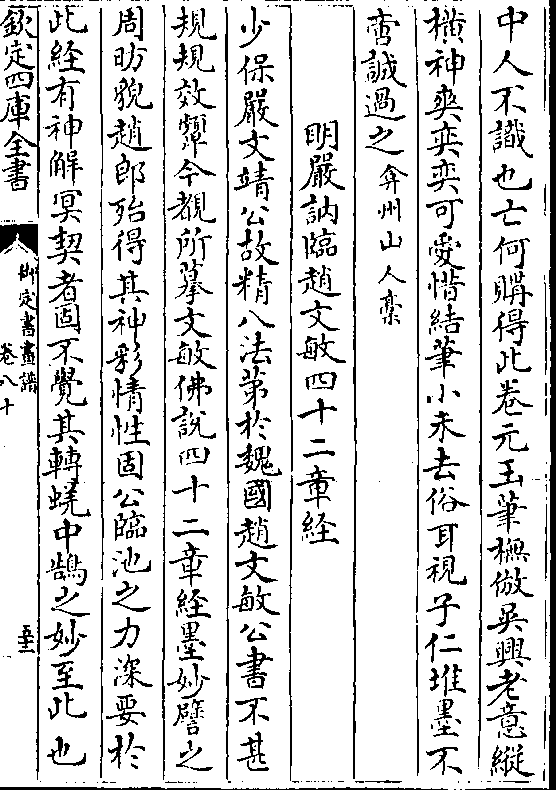 中人不識也亡何購得此卷元玉筆橅倣吳興老意縱
橫神爽奕奕可愛惜結筆小未去俗耳視子仁堆墨不
啻誠過之弇州山人藁
明嚴訥臨趙文敏四十二章經
少保嚴文靖公故精八法第於魏國趙文敏公書不甚
規規效顰今覩所摹文敏佛說四十二章經墨妙譬之
周昉貌趙郎殆得其神彩情性固公臨池之力深要於
此經有神解冥契者固不覺其轉蜣中鵠之妙至此也
欽定四庫全書
御定書畫譜
卷八十